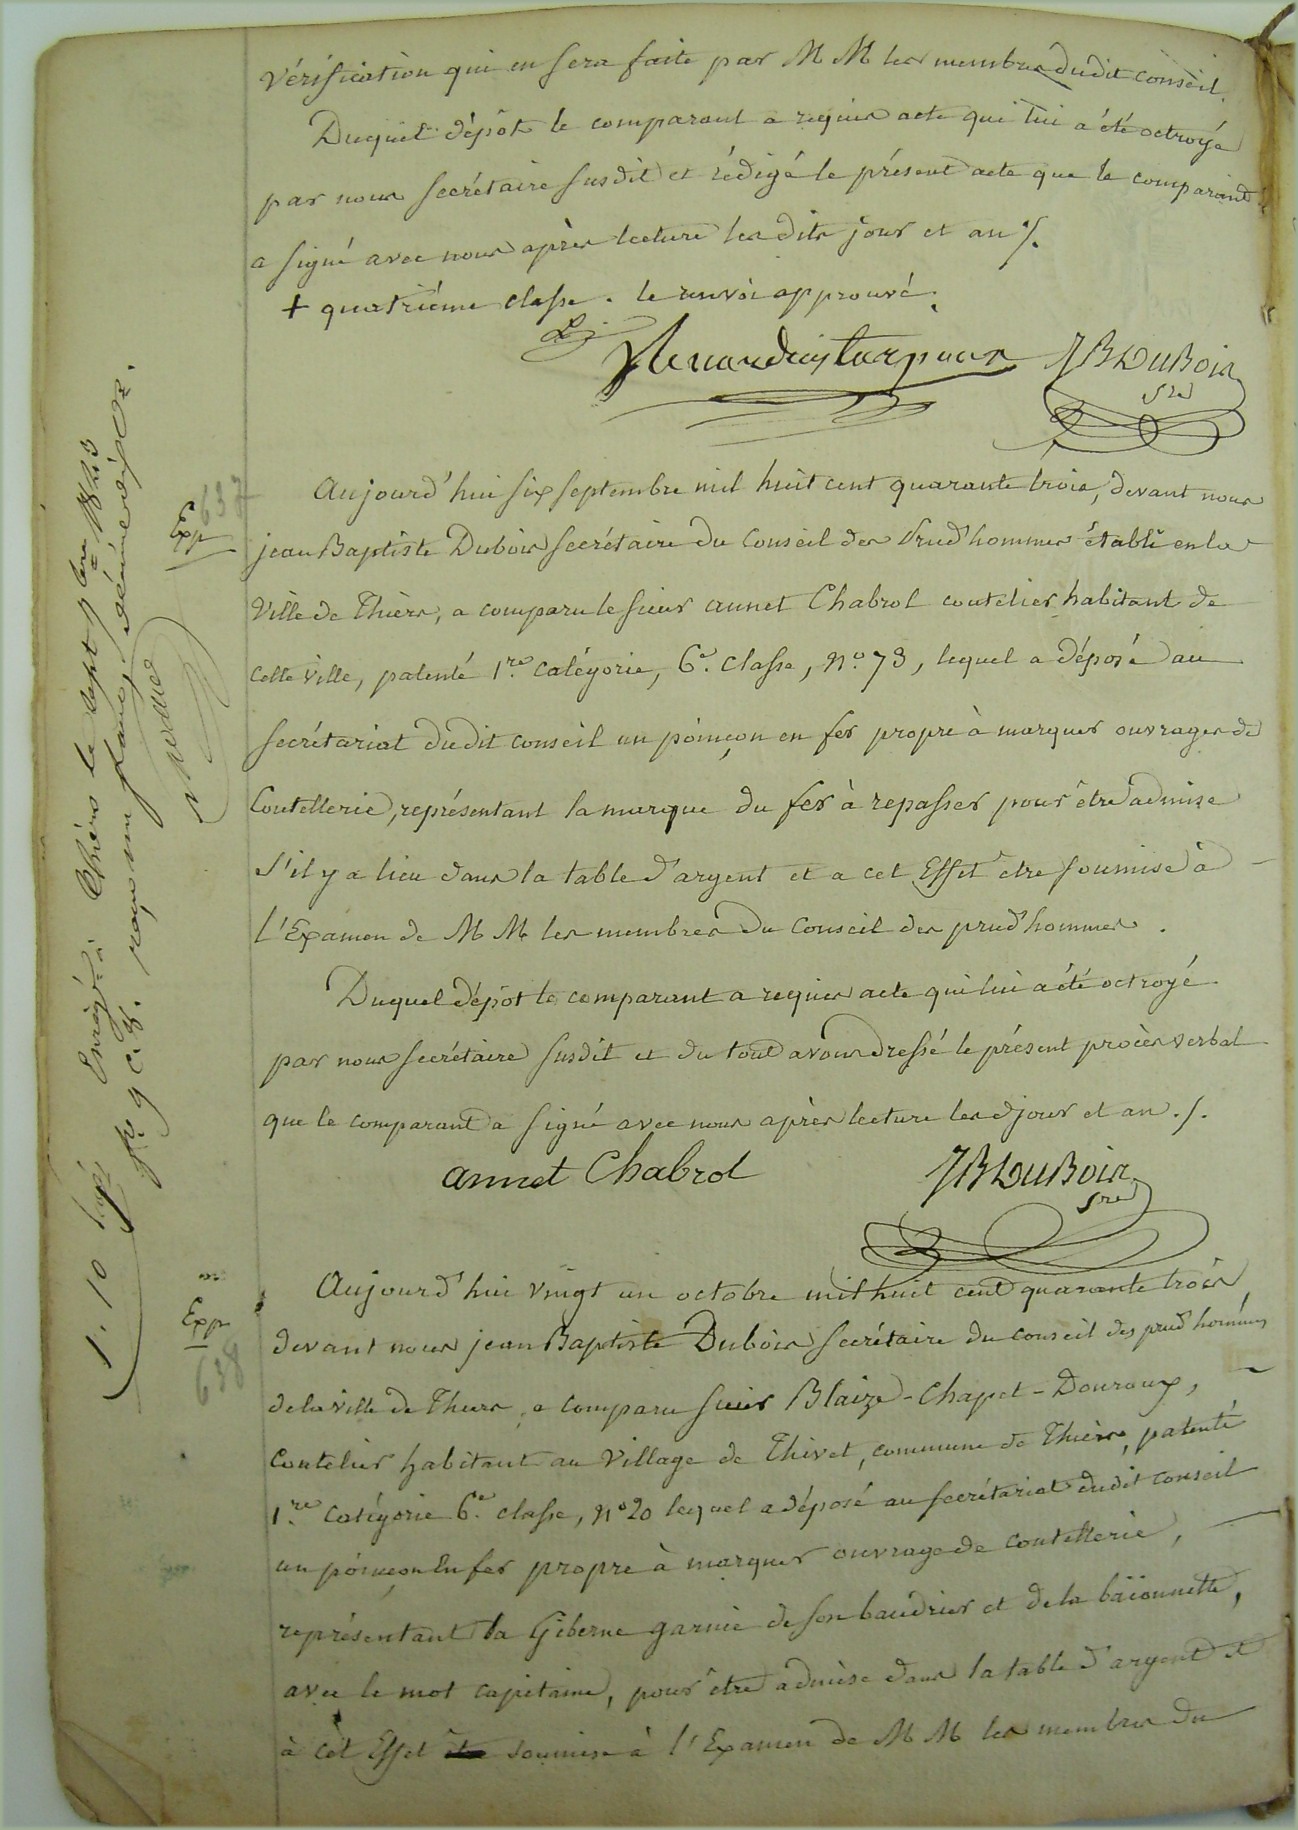 vérification qui en sera faite par M M les membres dudit conseil.
Duquel dépôt le comparant a requis acte qui lui a été octroyé
par nous secrétaire susdit et rédigé le présent acte que le comparant
a signé avec nous après lecture les dits jour et an ./.
+ quatrième classe . le renvoi approuvé.
JB DuBois
sre
Exp
637
Aujourd'hui six septembre mil huit cent quarante trois, devant nous
jean Baptiste Dubois secrétaire du Conseil des Prud'hommes établi en la
Ville de Thiers, a comparu le sieur annet Chabrol coutelier habitant de
cette ville, patenté 1.re catégorie, 6.e classe, N.o 73, lequel a déposé au
secrétariat dudit conseil un poinçon en fer propre à marquer ouvrages de
Coutellerie, représentant la marque du fer à repasser pour être admise
s'il y a lieu dans la table d'argent et a cet Effet être soumise à
l'Examen de M M les membres du Conseil des prud'hommes .
Duquel dépôt le comparant a requis acte qui lui a été octroyé
par nous secrétaire susdit et du tout avons dressé le présent procès verbal
que le comparant a signé avec nous après lecture les d jour et an ./.
annet Chabrol
JB DuBois
sre
Enregé à Thiers le sept 7bre 1843
reçu un franc, décime dix c.
1. 10
Exp
638
Aujourd'hui vingt un octobre mil huit cent quarante trois,
devant nous jean Baptiste Dubois secrétaire du conseil des prud'hommes
de la ville de Thiers, a comparu sieur Blaize-Chapet-Douroux,
Coutelier habitant au Village de Thivet, commune de Thiers, patenté
1.re catégorie 6.e classe, N.o 20 lequel a déposé au secrétariat dudit conseil
un poinçon En fer propre à marquer ouvrage de coutellerie,
représentant la Giberne garnie de son baudrier et de la baïonnette,
avec le mot capitaine, pour être admise dans la table d'argent et
à cet Effet soumise à l'Examen de M M les membres du